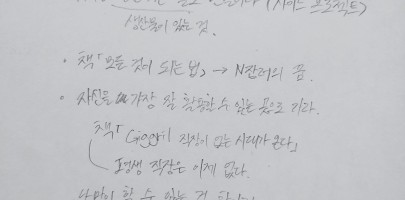 (사이드 프로젝트)
생산물이 있는 것.
• 책「모든 것이 되는 법」 → N잡러의 꿈.
• 자신을 가장 잘 활용할 수 있는 곳으로 가라.
책「 직장이 없는 시대가 온다」
평생 직장은 이제 없다.
할 수 있는 것